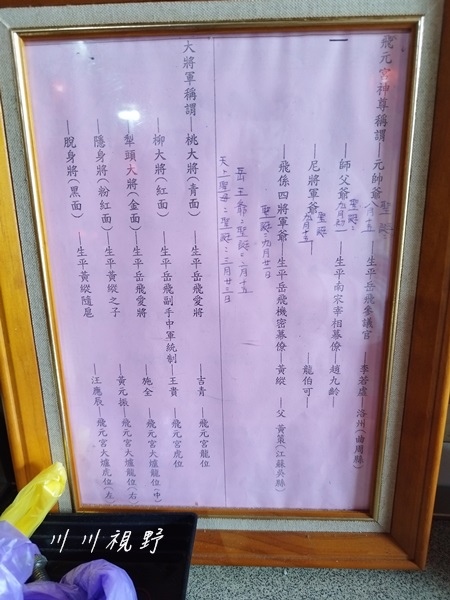 飛元宮神尊稱謂—元帥爺 聖誕八月十五—生平岳飛參議官—李若虛—洺州(曲周縣)
師父爺 聖誕:九月初一—生平南宋宰相幕僚—趙九齡
尼將軍爺 聖誕九月十五—龍伯可
飛係四將軍爺—生平岳飛機密幕僚—黃縱—父 黃策(江蘇吳縣)
聖誕:九月廿一日
岳王爺:聖誕:二月十五
天上聖母:聖誕:三月廿三日
大將軍稱謂—桃大將(青面)—生平岳飛愛將—吉青—飛元宮龍位
柳大將(紅面)—生平岳飛副手中軍統制—王貴—飛元宮虎位
犁頭大將(金面)—生平岳飛愛將—施全—飛元宮大爐龍位(中)
隱身將(粉紅面)—生平黃縱之子—黃元振—飛元宮大爐龍位(右)
脫身將(黑面)—生平黃縱隨扈—汪應辰—飛元宮大爐虎位(左)
川川視野